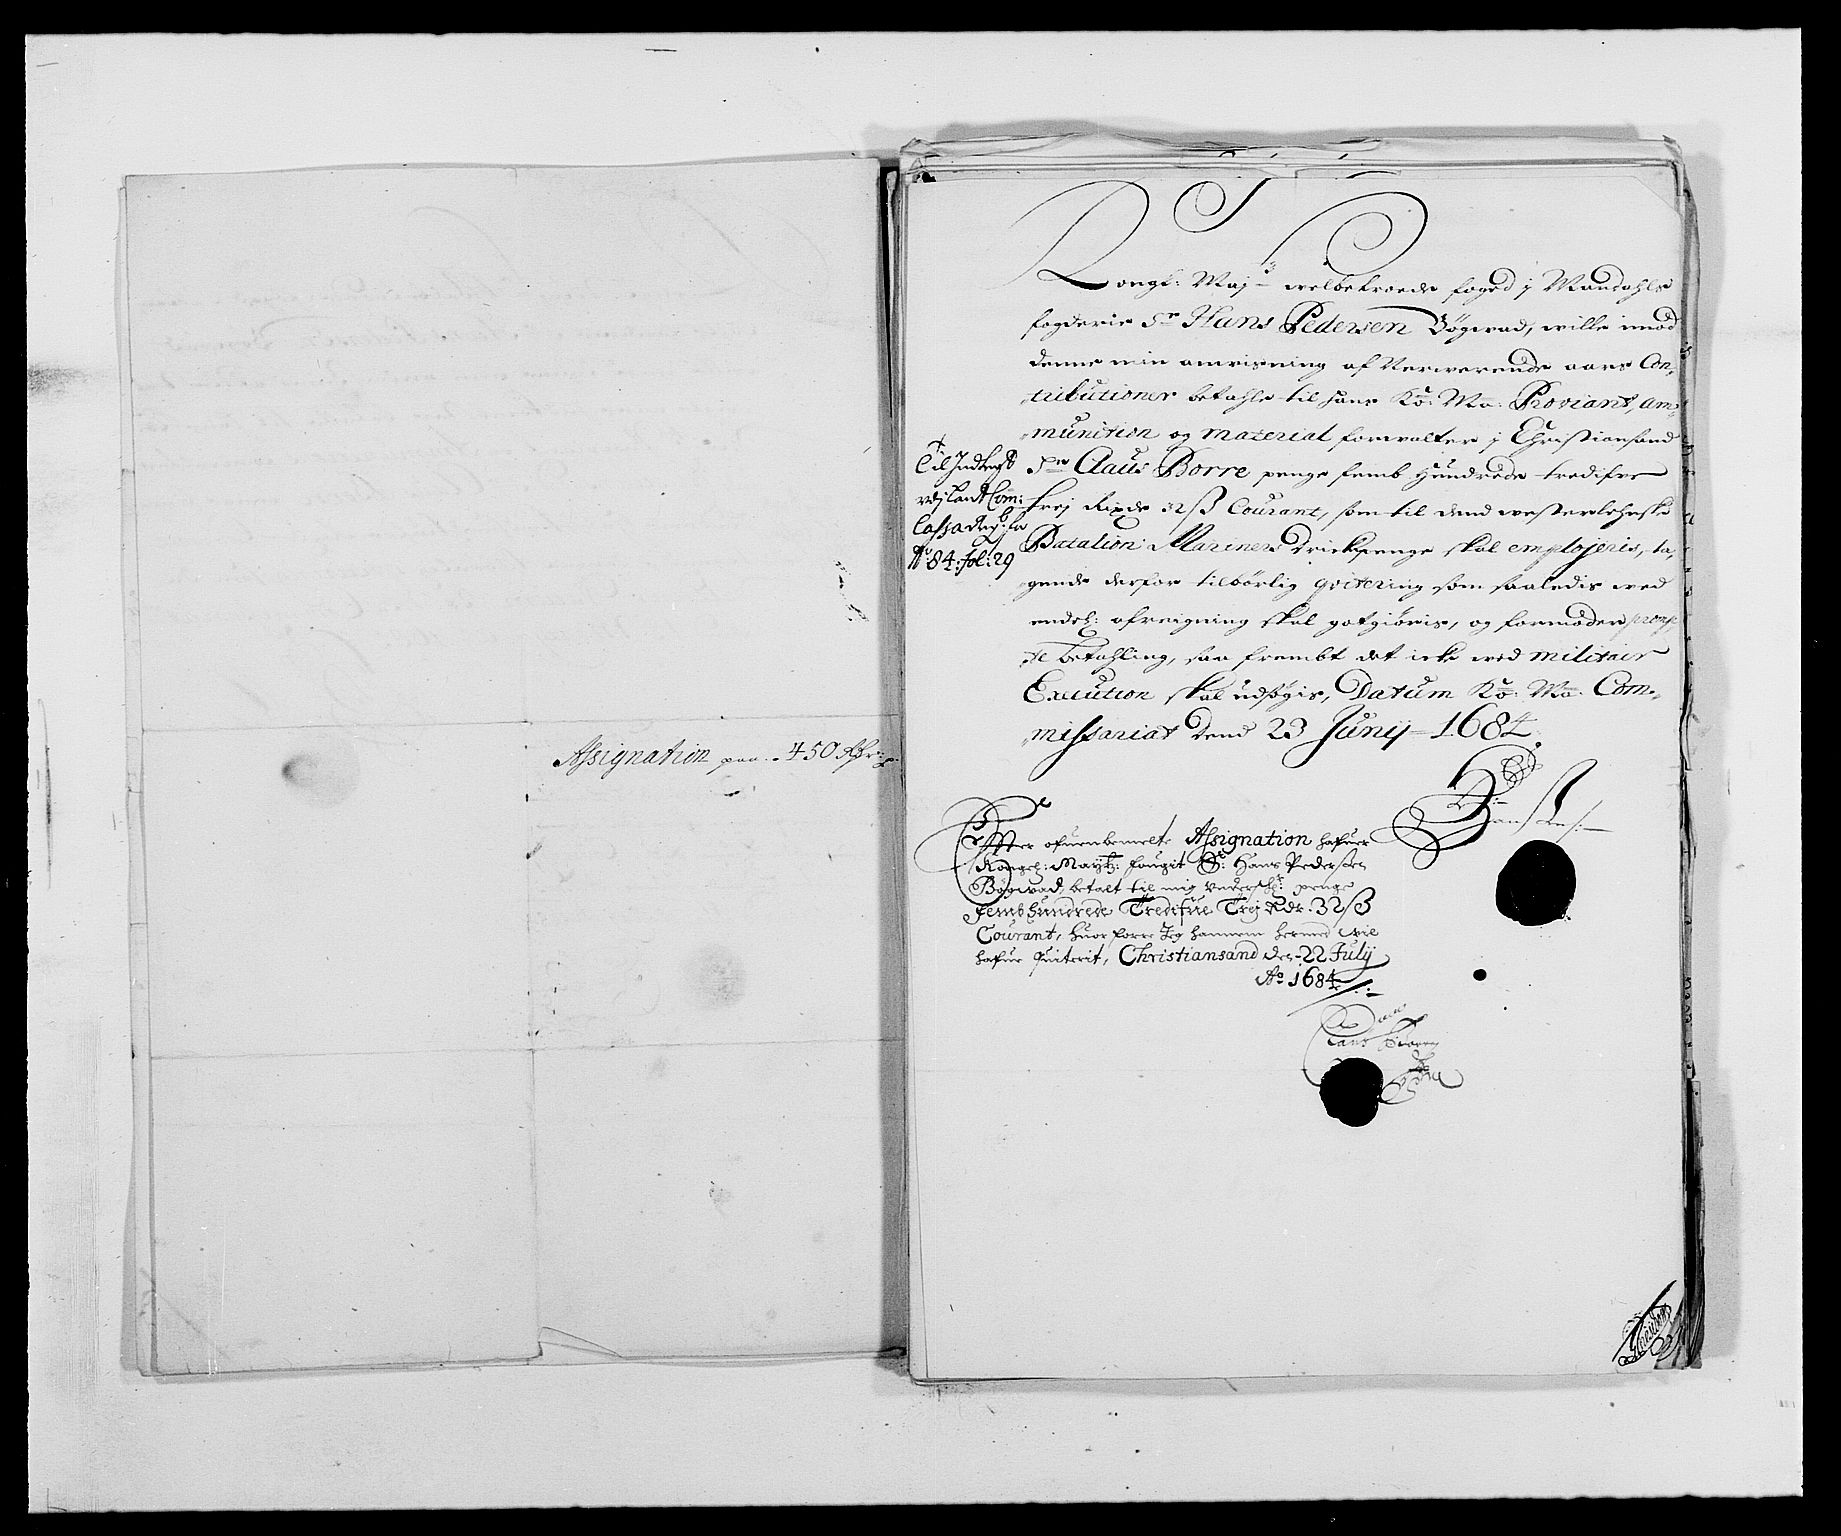 Assignation paa. 450 Rdr:
Kongl: Maj:ts welbetroede foged j Mandahls
fogderie Sr Hans Pedersen Bögwad, wille imod
denne min anvisning af Nerwerende aars Con-
tributioner betahle til hans Ko: Ma: Proviant, Am-
munition og Material forwalter j Christiansand
Sr Claus Borre penge femb Hundrede tredifve
trej Rixdr 32 ß Courant, som til dend westerlehnske
Batalion: Mariners Trickpenge skal emplojeris, ta-
gende derfor tilbörlig qvitering som saaledis wed
endel: afreigning skal gotgiöris, og formoder promp-
te betahling, saa frembt det icke wed militair
Execution skal udsögis, Datum Ko: Ma: Com-
missariat Dend 23 Junij 1684
Til Indtegt
vdj Land Com:
Cassa Regb:
Ao 84: fol: 29
Efter ofuenbemelte Assignation hafuer
Kongel: Maytz: fougit Sr: Hans Pedersen
Bögwad, betalt til mig vnderschr: penge
femb hundrede Tredifue Trej Rdr. 32 ß
Courant, huor forre Jeg hannem hermed wil
hafue quiterit, Christiansand den 22 July
Ao 1684
Claus